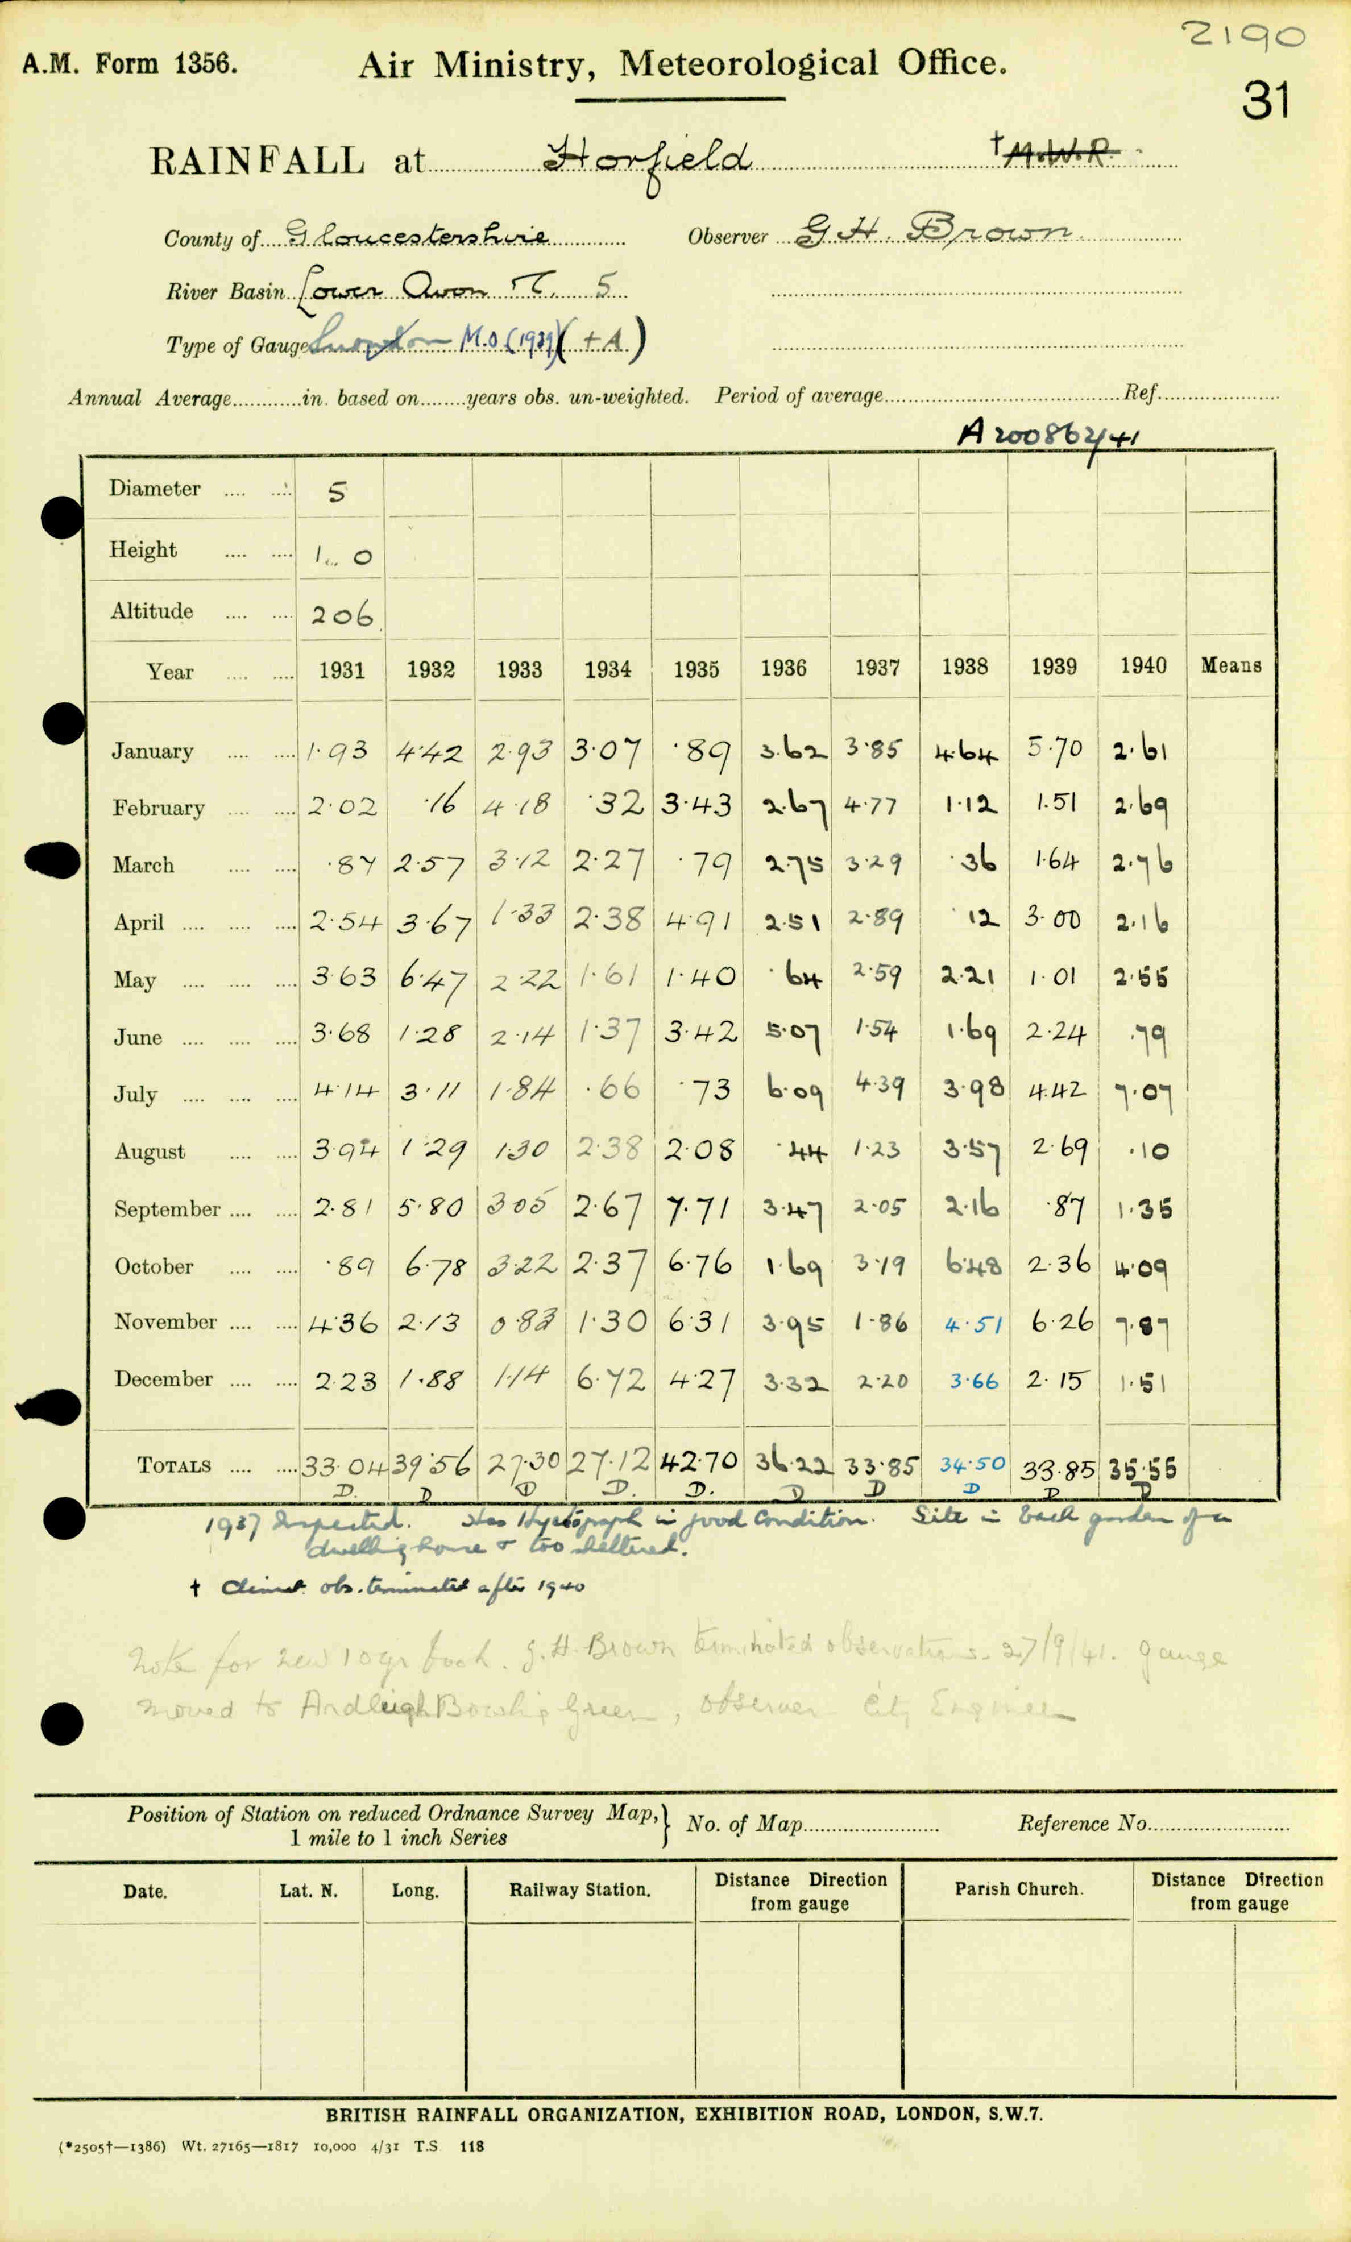 2190
A.M. Form 1356. Air Ministry, Meteorological Office.
31
RAINFALL at Horfield †M.W.R.
County of Gloucestershire Observer G.H. Brown
River Basin Lower Avon 5
Type of Gauge Snowdon M.O. (1939) (+A)
Annual Average in. based on years obs. un-weighted. Period of average Ref.
A200862/41
Diameter 5
Height 1.. 0
Altitude 206
Year 1931 1932 1933 1934 1935 1936 1937 1938 1939 1940 Means
January 1·93 4·42 2·93 3·07 ·89 3.62 3·85 4.64 5·70 2·61
February 2·02 ·16 4·18 ·32 3·43 2.67 4·77 1·12 1.51 2·69
March ·87 2·57 3·12 2·27 ·79 2.75 3·29 ·36 1·64 2·76
April 2·54 3·67 1·33 2·38 4·91 2.51 2·89 ·12 3·00 2.16
May 3·63 6·47 2·22 1·61 1·40 ·64 2·59 2·21 1·01 2·55
June 3·68 1·28 2·14 1·37 3·42 5·07 1·54 1·69 2·24 .79
July 4·14 3·11 1·84 ·66 ·73 6·09 4·39 3·98 4·42 7·07
August 3·94 1·29 1·30 2·38 2·08 ·44 1·23 3·57 2·69 ·10
September 2·81 5·80 3·05 2·67 7·71 3·47 2·05 2·16 ·87 1·35
October ·89 6·78 3·22 2·37 6·76 1·69 3·19 6·48 2·36 4·09
November 4·36 2·13 0·83 1·30 6·31 3·95 1·86 4·51 6·26 7·87
December 2·23 1·88 1·14 6·72 4·27 3·32 2·20 3·66 2·15 1·51
TOTALS 33·04 39·56 27·30 27·12 42·70 36·22 33·85 34·50 33·85 35·55
D. D D D. D. D D D D D
1937 Inspected. Has Hyetograph in good condition. Site in back garden of a
dwelling house & too sheltered.
† Climat. obs. terminated after 1940
Note for new 10 yr book. G.H. Brown terminated observations 27/9/41. gauge
moved to Ardleigh Bowling Green, observer City Engineer
Position of Station on reduced Ordnance Survey Map, } No. of Map Reference No.
1 mile to 1 inch Series
Date. Lat. N. Long. Railway Station. Distance Direction from gauge Parish Church. Distance Direction from gauge
BRITISH RAINFALL ORGANIZATION, EXHIBITION ROAD, LONDON, S.W.7.
(*2505†—1386) Wt. 27165—1817 10,000 4/31 T.S. 118